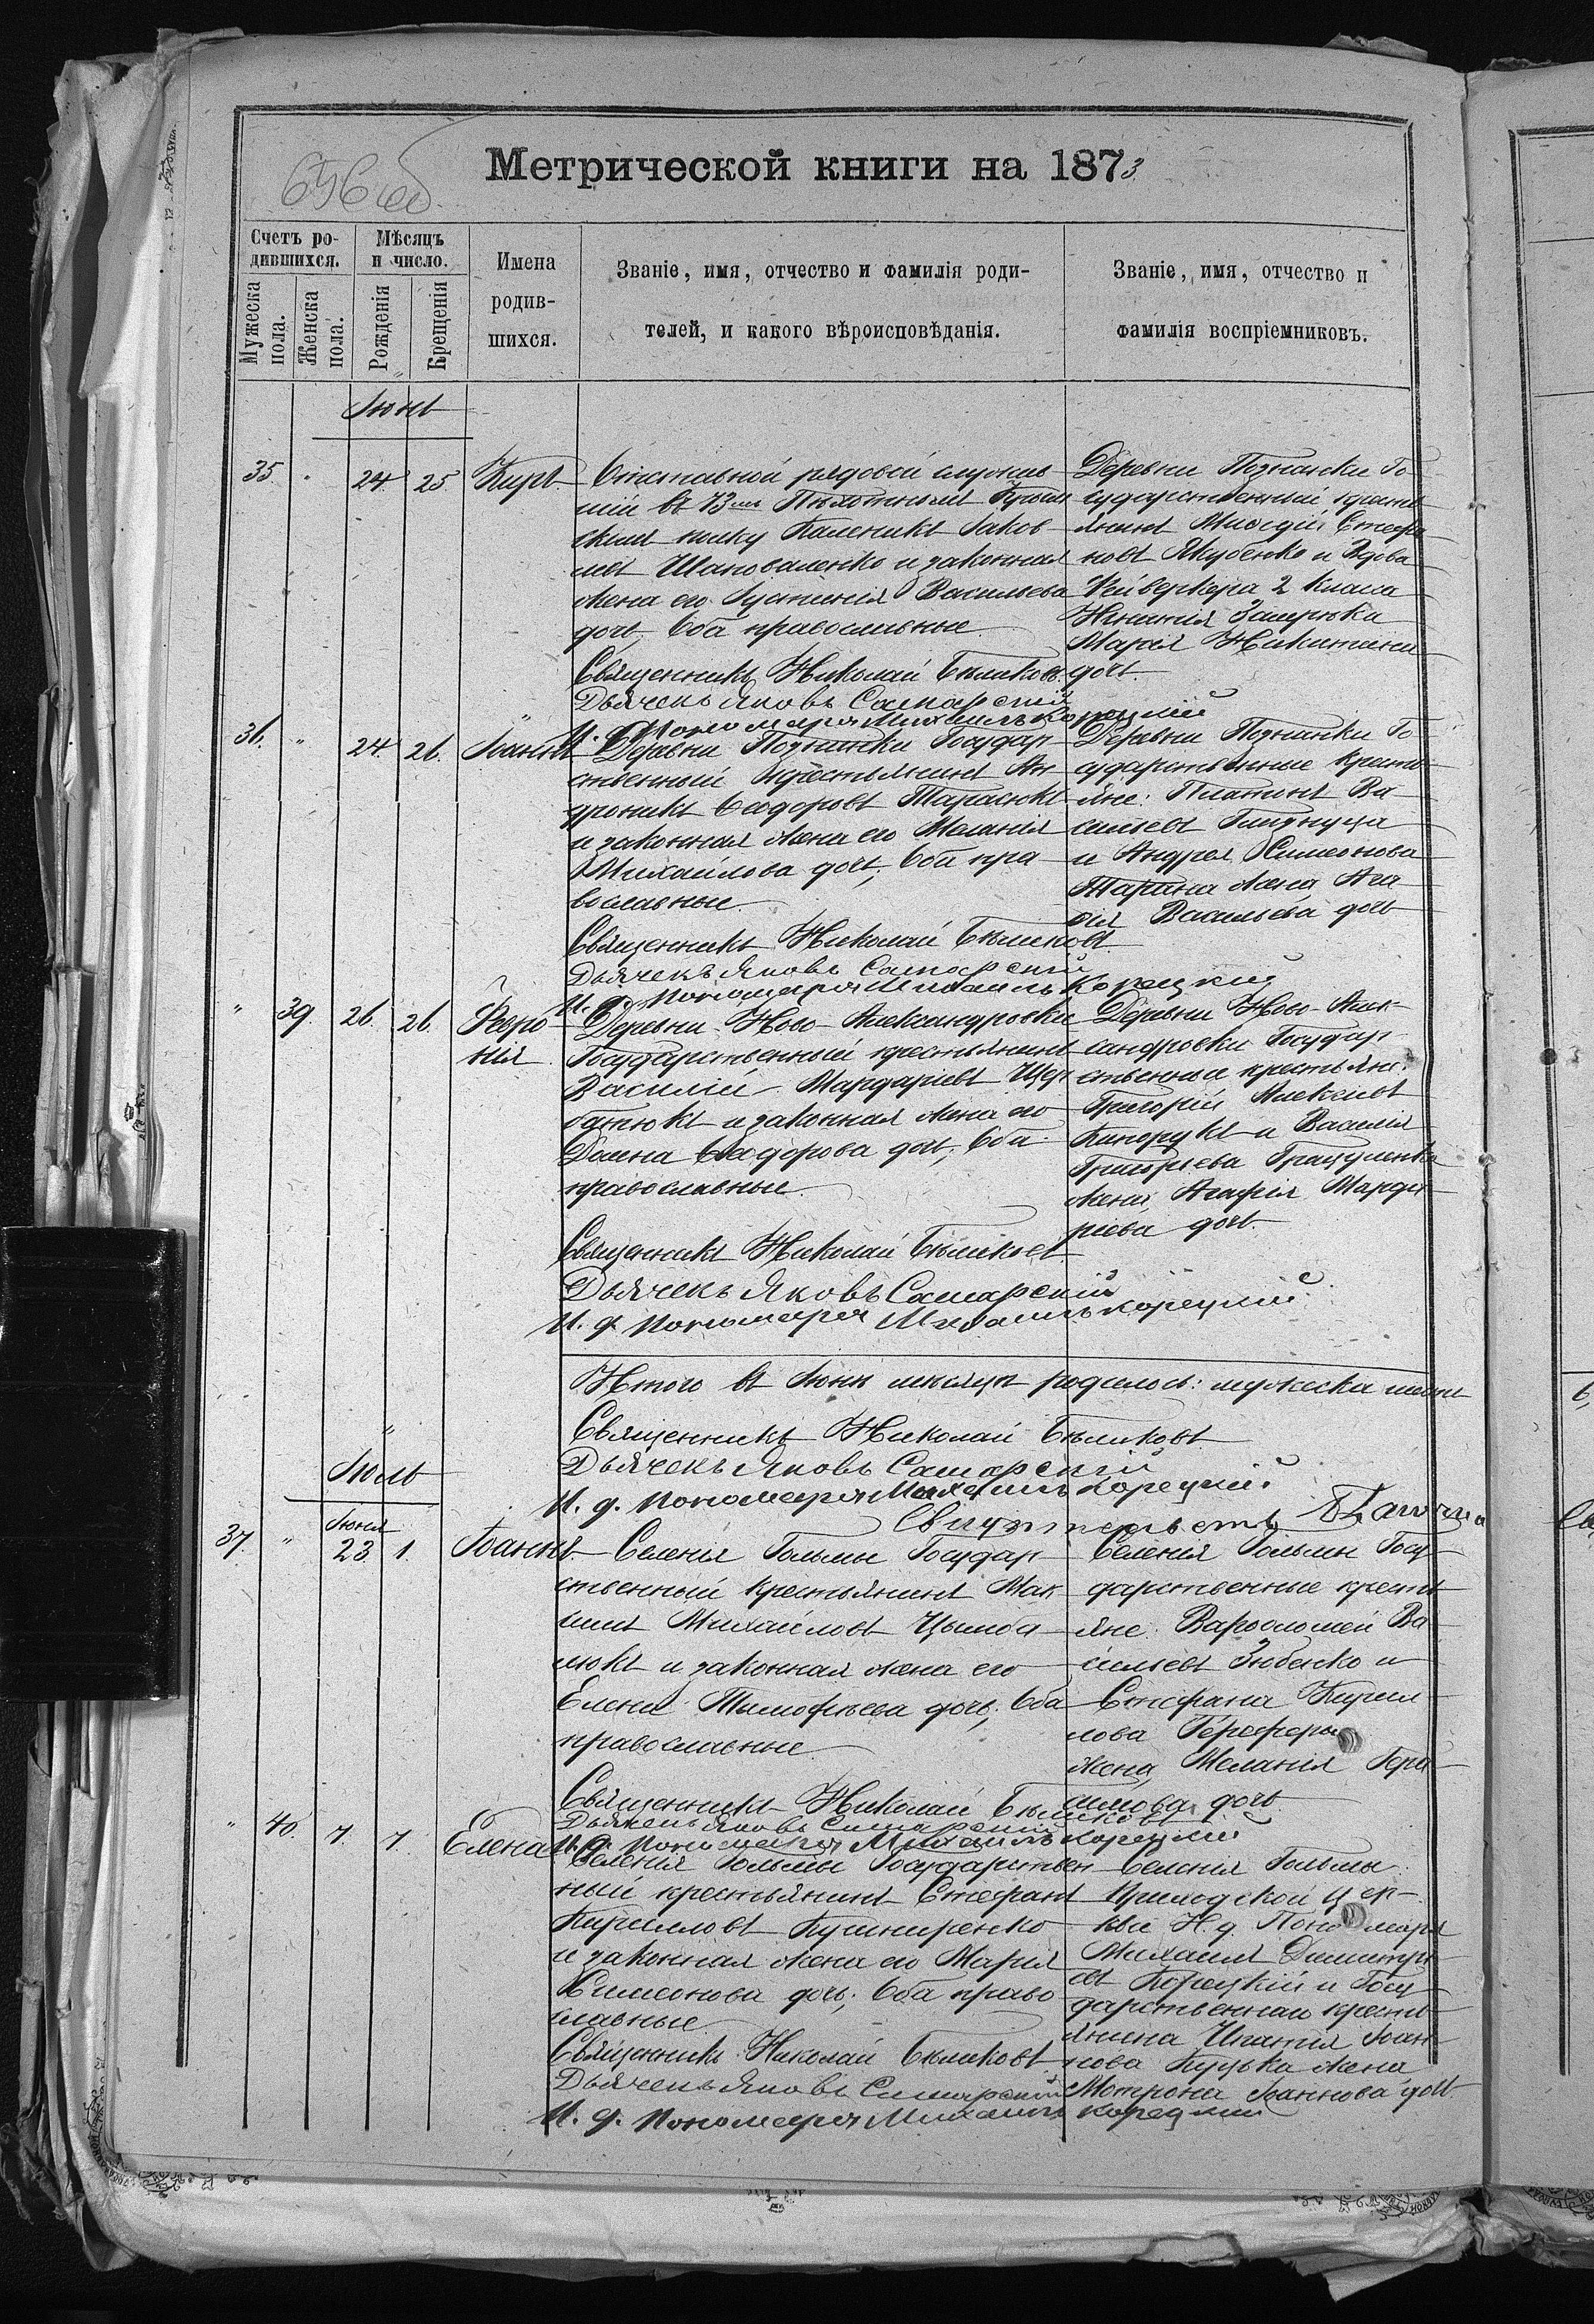 Метрической книги на 1873
656 об
Счетъ ро-
дившихся.
Мѣсяцъ
и число.
Имена
родив-
шихся.
Званіе, имя, отчество и фамилія роди-
телей, и какого вѣроисповѣданія.
Званіе, имя, отчество и
фамилія воспріемниковъ.
Мужеска
пола.
Женска
пола.
Рожденія
Крещенія
Іюнь
35. " 24. 25 Киръ
Отставной рядовой служив-
шій въ 73мъ Пѣхотномъ Крым
скомъ полку Каленикъ Іаков-
левъ Шаповаленко и законная
жена его Іустинія Васильева
дочь, оба православные.
Священникъ Николай Бѣликовъ.
Дьячекъ Яковъ Самарскій
И. д. пономаря Михаилъ Корецкій
Деревни Познанки Го-
сударственный кресть-
янинъ Стефа-
новъ Якубенко и Вдова
2 класа
Игнатія
Марія Никитина
дочь.
36. " 24. 26. Іоаннъ
Деревни Познанки Государ-
ственный крестьянинъ Ан-
дроникъ Ѳеодоровъ Тарасюкъ
и законная жена его Меланія
Михайлова дочь, оба пра-
вославные.
Священникъ Николай Бѣликовъ
Дьячекъ Яковъ Самарскій
И. д. пономаря Михаилъ Корецкій
Деревни Познанки Го-
сударственные кресть-
яне: Ва-
сильевъ
и Андрея Симеонова
жена Ага-
фія Васильева дочь
" 39. 26. 26. Февро-
нія
Деревни Ново-Александровки
Государственный крестьянинъ
Василій Мардаріевъ Щер-
батюкъ и законная жена его
Домна Ѳеодорова дочь, оба
православные.
Священникъ Николай Бѣликовъ.
Дьячекъ Яковъ Самарскій
И. д. пономаря Михаилъ Корецкій
Деревни Ново-Алек-
сандровки Государ-
ственные крестьяне:
Григорій Алексѣевъ
и Василія
Григорьева
жена, Агафія Марда-
ріева дочь.
Итого въ Іюнѣ мѣсяцѣ родилось: мужеска
Священникъ Николай Бѣликовъ
Дьячекъ Яковъ Самарскій
И. д. пономаря Михаилъ Корецкій
Іюль
37. " Іюня 23 1. Іоаннъ
Селенія Гольмы Государ-
ственный крестьянинъ Мак-
симъ Михайловъ Цымба-
люкъ и законная жена его
Елена Тимофѣева дочь, оба
православные.
Священникъ Николай Бѣликовъ
Дьячекъ Яковъ Самарскій
И. д. пономаря Михаилъ Корецкій
Селенія Гольмы Госу-
дарственные кресть-
яне: Варѳоломей Ва-
сильевъ Зубенко и
Стефана Кирил-
лова
жена, Меланія Гера-
симова дочь
" 40. 7. 7. Елена
Селенія Гольмы Государствен-
ный крестьянинъ Стефанъ
Кирилловъ Кушниренко
и законная жена его Марія
Симеонова дочь, оба право-
славные
Священникъ Николай Бѣликовъ
Дьячекъ Яковъ Самарскій
И. д. пономаря Михаилъ Корецкій
Селенія Гольмы
Приходской цер-
кви И. д. Пономаря
Михаилъ Димитрі-
евъ Корецкій и Госу-
дарственнаго кресть-
янина Игнатія Іоан-
нова Куцька жена
Мотрона Іоаннова дочь